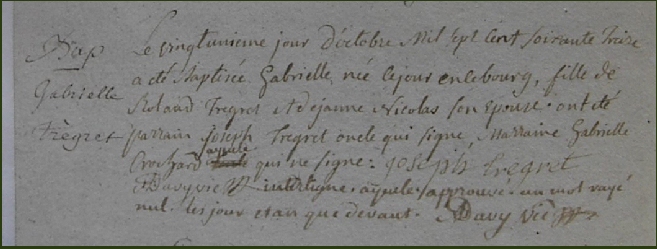 Bap
Gabrielle
Trègret
Le vingtunieme jour d'octobre Mil sept Cent soixante treize
a été Baptisée Gabrielle née cejour encebourg, fille de
Roland Tregret et de jeanne Nicolas son Epouse. ont été
parrain joseph Tregret oncle qui signe, Marraine Gabrielle
ayeule
Crochard qui ne signe: joseph tregret
Davy vic interligne. ayeule. approuvé. un mot rayé
nul. les jour et an que devant. Davy vic